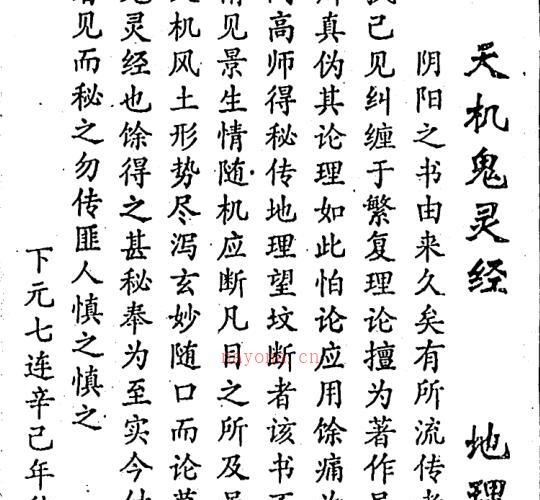 天机鬼灵经 地理
阴阳之书由来久矣有所流传
己见纠缠于繁复理论擅为著作
真伪其论理如此怕论应用馀痛
高师得秘传地理望坟断者该书
见景生情随机应断凡目之所及
机风土形势尽泻玄妙随口而论
灵经也馀得之甚秘奉为至实今
见而秘之勿传匪人慎之慎之
下元七连辛己年
nayona.cn